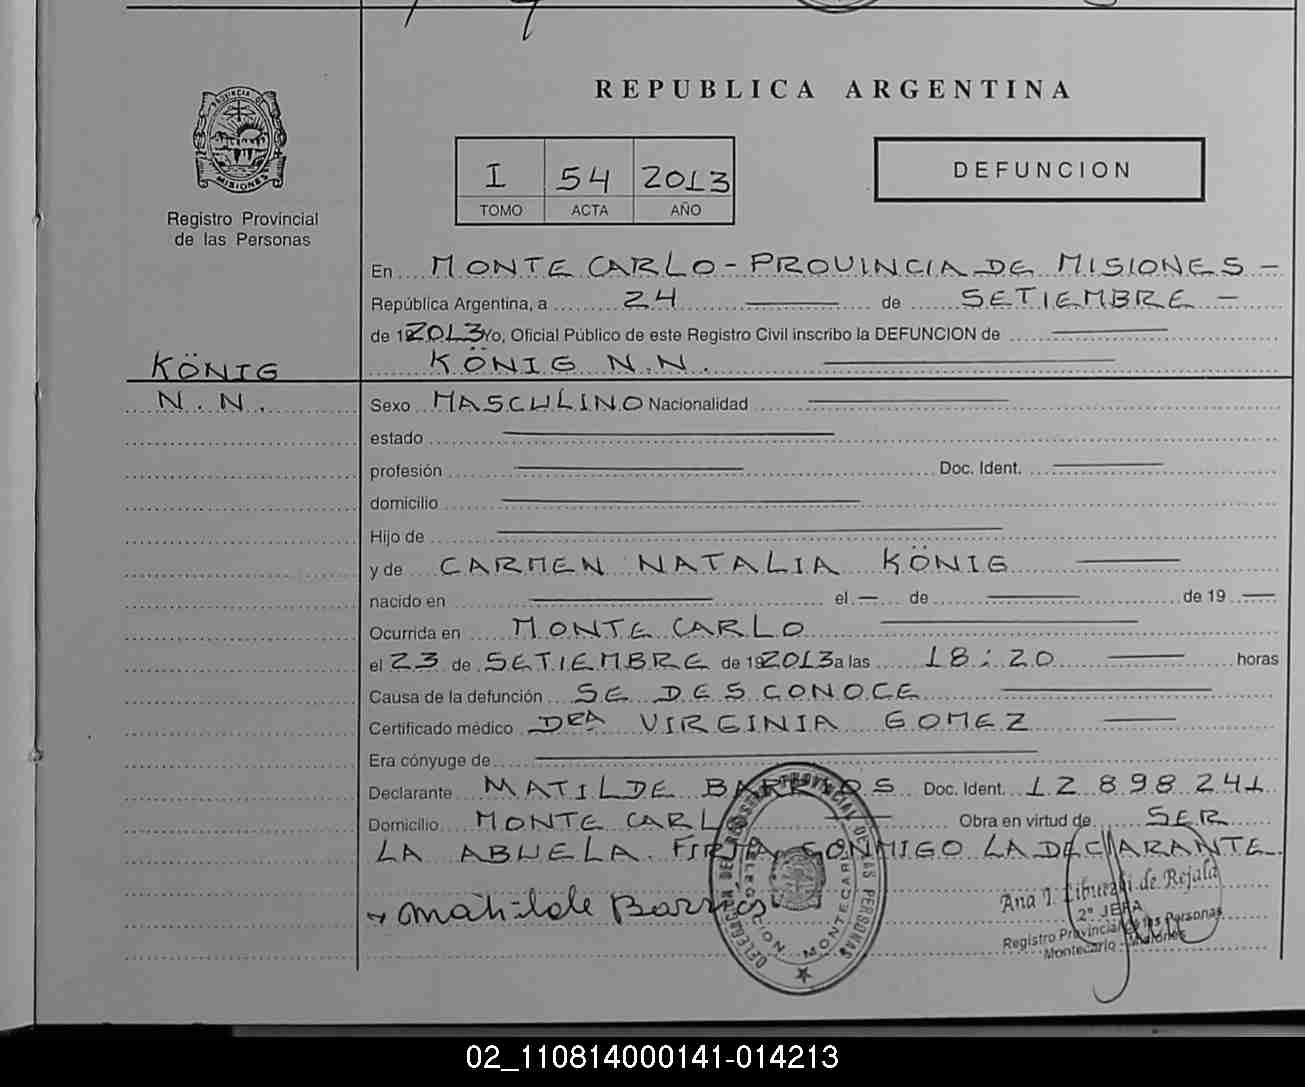 REPUBLICA ARGENTINA
PROVINCIA DE
MISIONES
Registro Provincial
de las Personas
I 54 2013
TOMO ACTA AÑO
DEFUNCION
En MONTE CARLO - PROVINCIA DE MISIONES -
República Argentina, a 24 de SETIEMBRE -
de 2013 Yo, Oficial Público de este Registro Civil inscribo la DEFUNCION de
KÖNIG N.N.
KÖNIG
N.N.
Sexo MASCULINO Nacionalidad
estado
profesión Doc. Ident.
domicilio
Hijo de
y de CARMEN NATALIA KÖNIG
nacido en el — de de 19
Ocurrida en MONTE CARLO
el 23 de SETIEMBRE de 2013 a las 18:20 horas
Causa de la defunción SE DESCONOCE
Certificado médico DRA VIRGINIA GOMEZ
Era cónyuge de
Declarante MATILDE BARRIOS Doc. Ident. 12 898 241
Domicilio MONTE CARLO Obra en virtud de SER
LA ABUELA. FIRMA CONMIGO LA DECLARANTE.
Matilde Barrios
DELEGACION MONTECARLO
Ana I. de Rejala
2º JEFA
Registro Provincial de las Personas
Montecarlo - Misiones
02_110814000141-014213